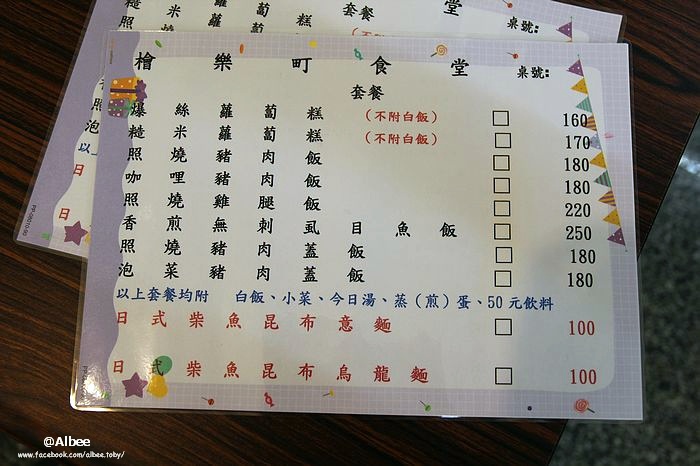 套餐 堂
桌號:
檜樂町食堂 桌號:
套餐
爆絲蘿蔔糕 (不附白飯) □ 160
糙米蘿蔔糕 (不附白飯) □ 170
照燒豬肉飯 □ 180
咖哩豬肉飯 □ 180
照燒雞腿飯 □ 220
香煎無刺虱目魚飯 □ 250
照燒豬肉蓋飯 □ 180
泡菜豬肉蓋飯 □ 180
以上套餐均附 白飯、小菜、今日湯、蒸(煎)蛋、50元飲料
日式柴魚昆布意麵 □ 100
日式柴魚昆布烏龍麵 □ 100
@Albee
www.facebook.com/albee.toby/